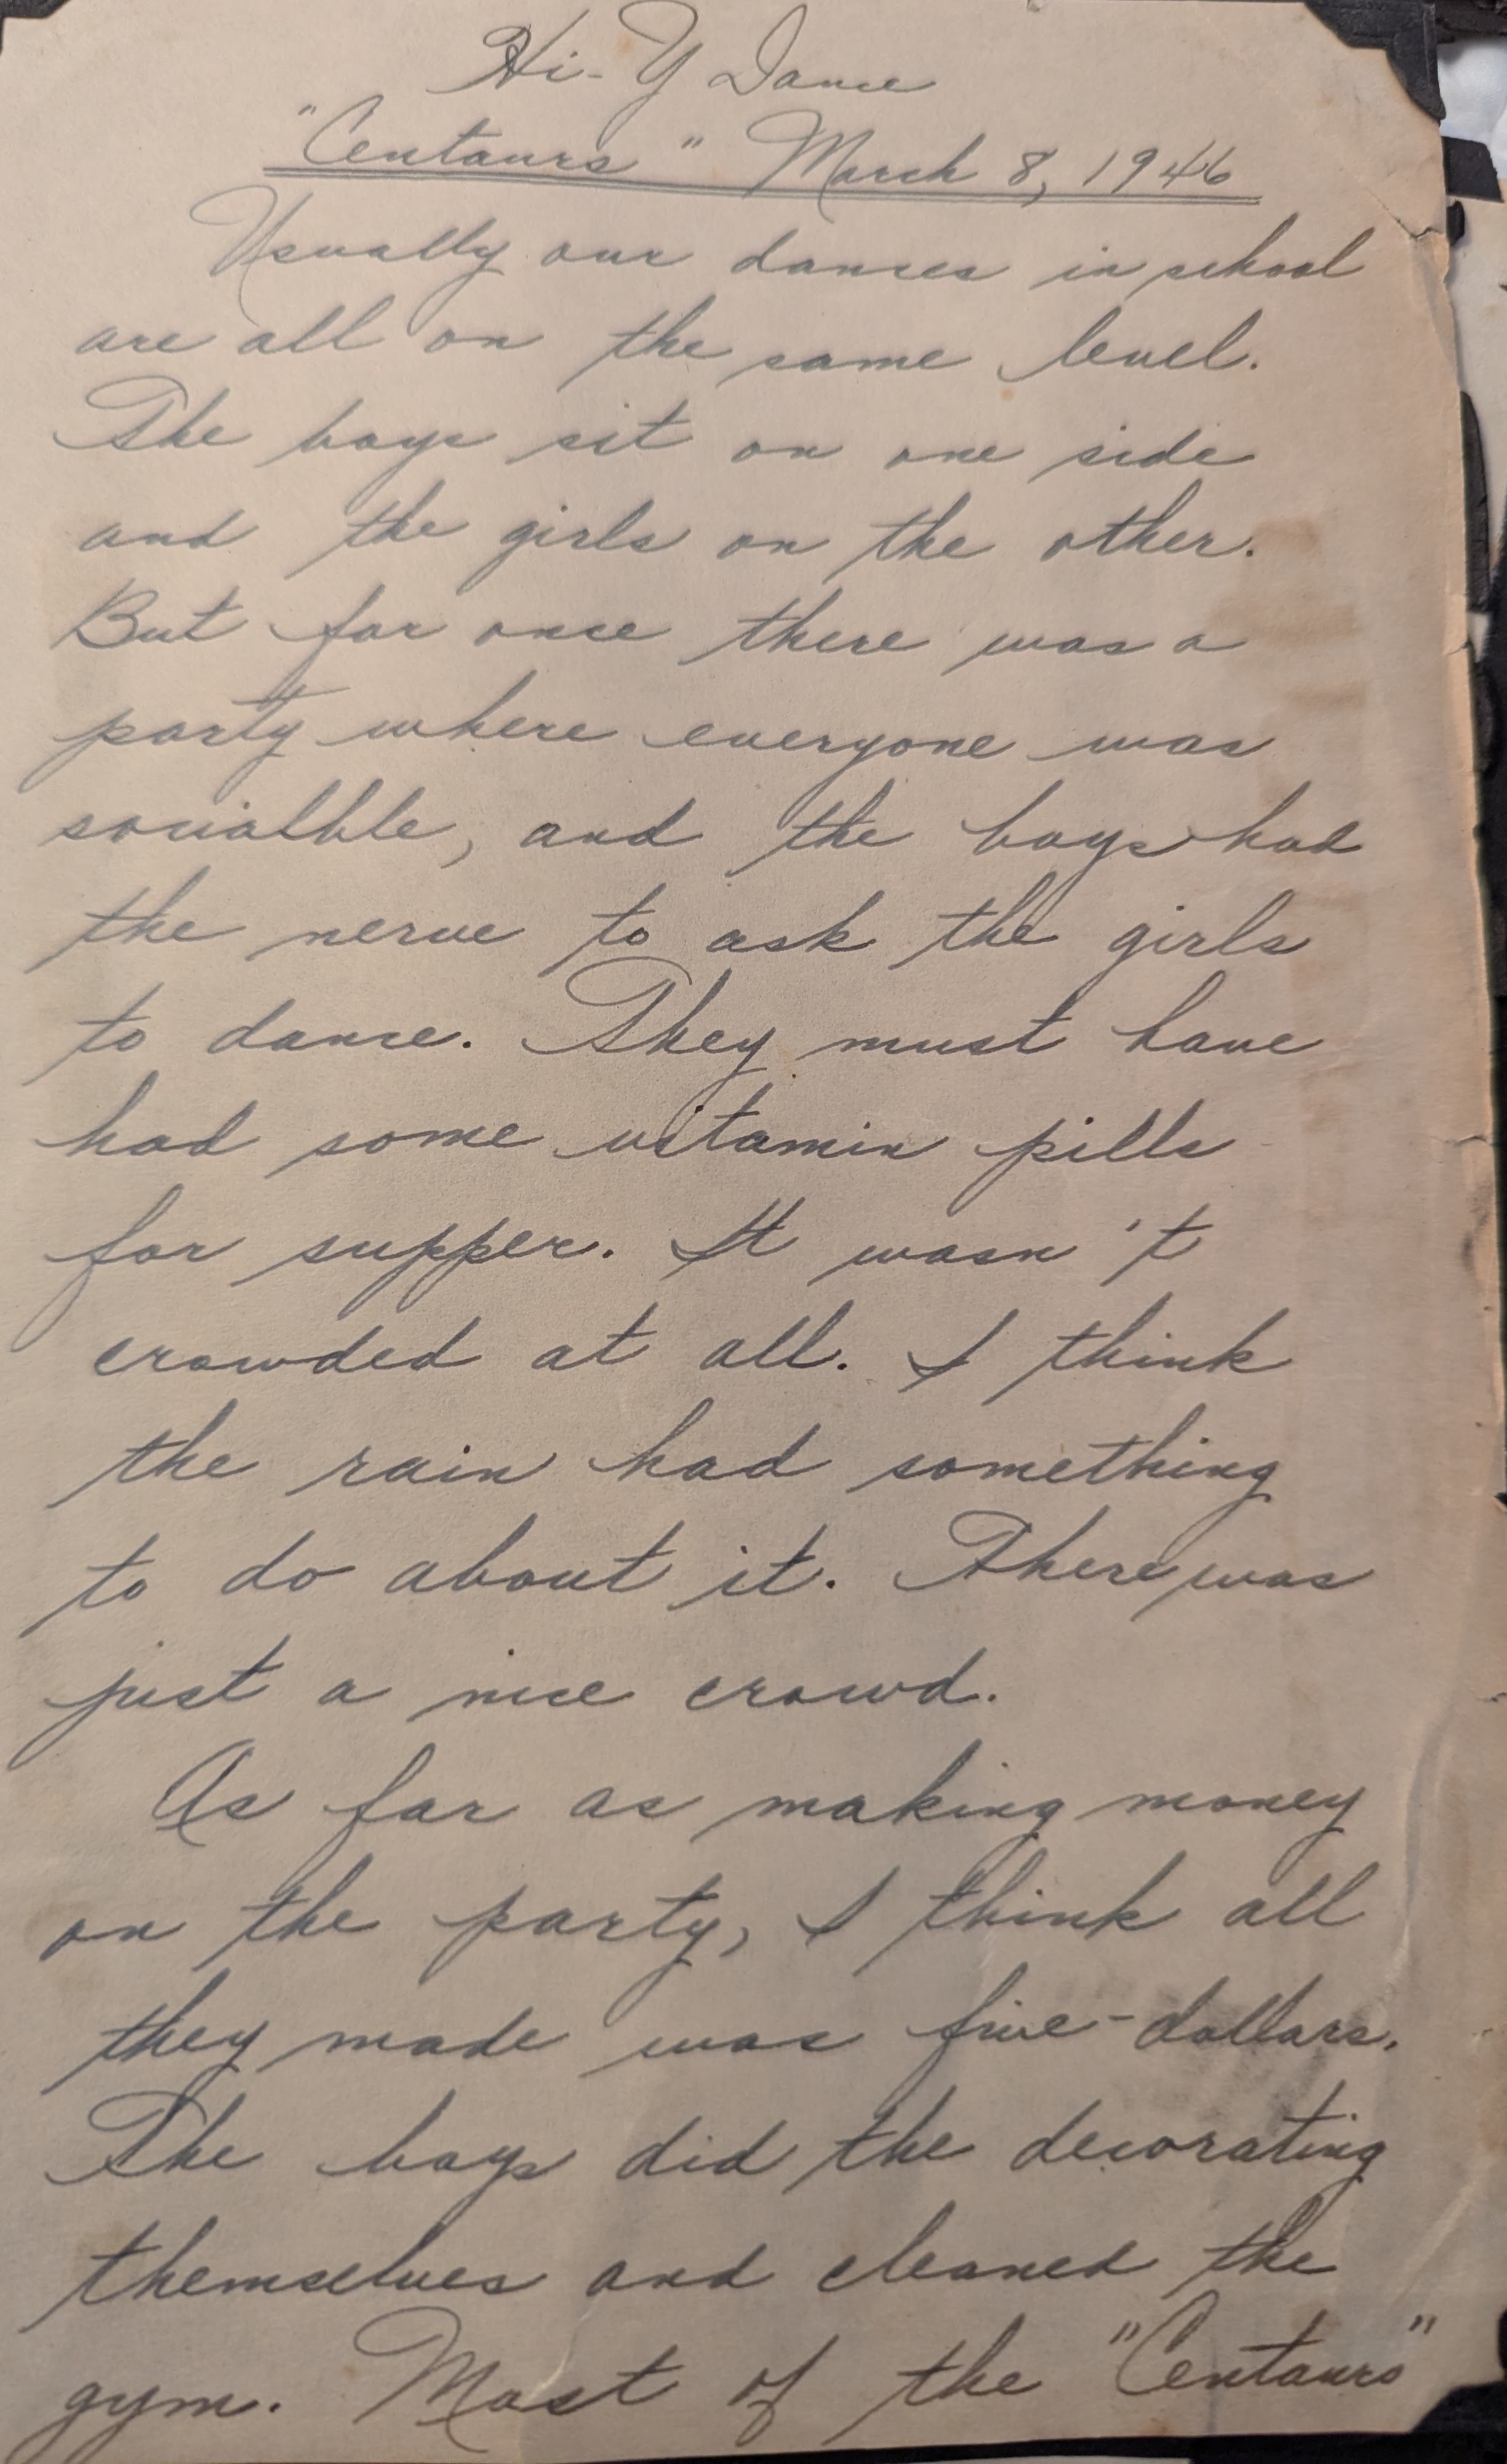 Hi-Y Dance
"Centaurs" March 8, 1946
Usually our dances in school
are all on the same level.
The boys sit on one side
and the girls on the other.
But for once there was a
party where everyone was
socialble, and the boys had
the nerve to ask the girls
to dance. They must have
had some vitamin pills
for supper. It wasn't
crowded at all. I think
the rain had something
to do about it. There was
just a nice crowd.
As far as making money
on the party, I think all
they made was five-dollars.
The boys did the decorating
themselves and cleaned the
gym. Most of the "Centaurs"